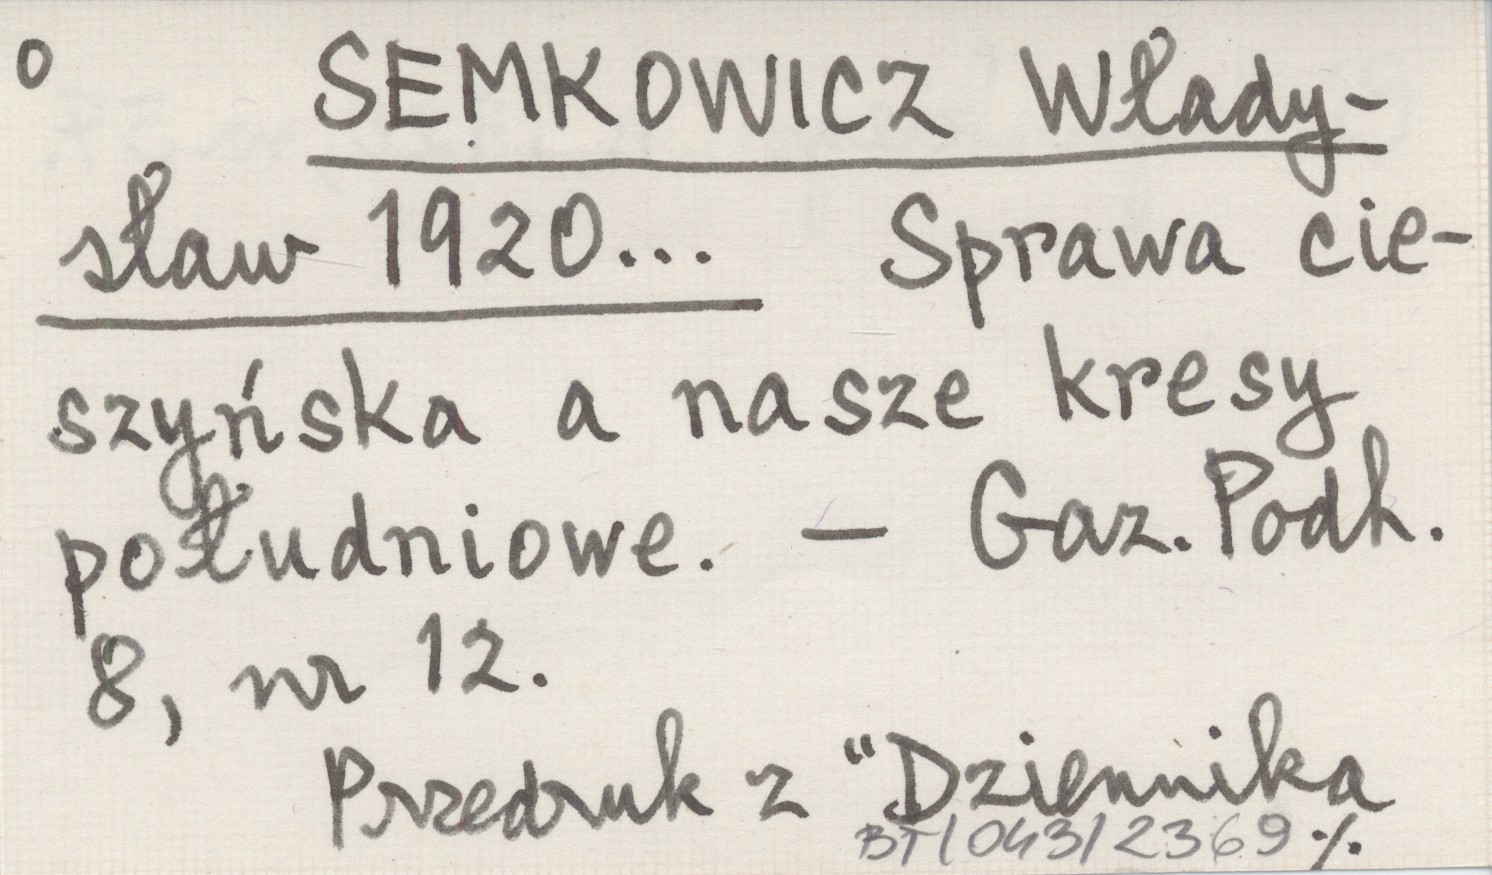 o SEMKOWICZ Włady-
sław 1920... Sprawa cie-
szyńska a nasze kresy
południowe. — Gaz. Podh.
8, nr 12.
Przedruk z "Dziennika
BT/043/2369 ·/.